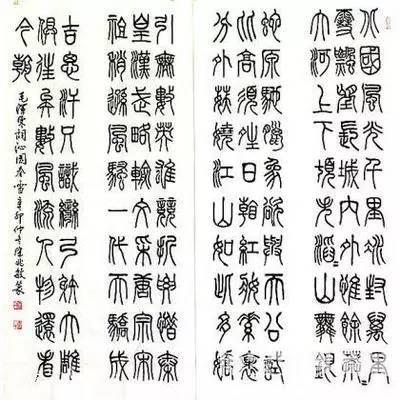 北國風光千里冰封萬里
雪飄望長城內外惟餘莽莽
大河上下頓失滔滔山舞銀
蛇原馳蠟象欲與天公試
比高須晴日看紅裝素裹
分外妖嬈江山如此多嬌
引無數英雄競折腰惜秦
皇漢武略輸文采唐宗宋
祖稍遜風騷一代天驕成
吉思汗只識彎弓射大雕
俱往矣數風流人物還看
今朝
毛澤東詞沁園春雪辛卯仲冬